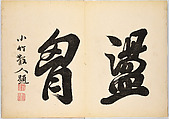 盪胷
小竹散人題